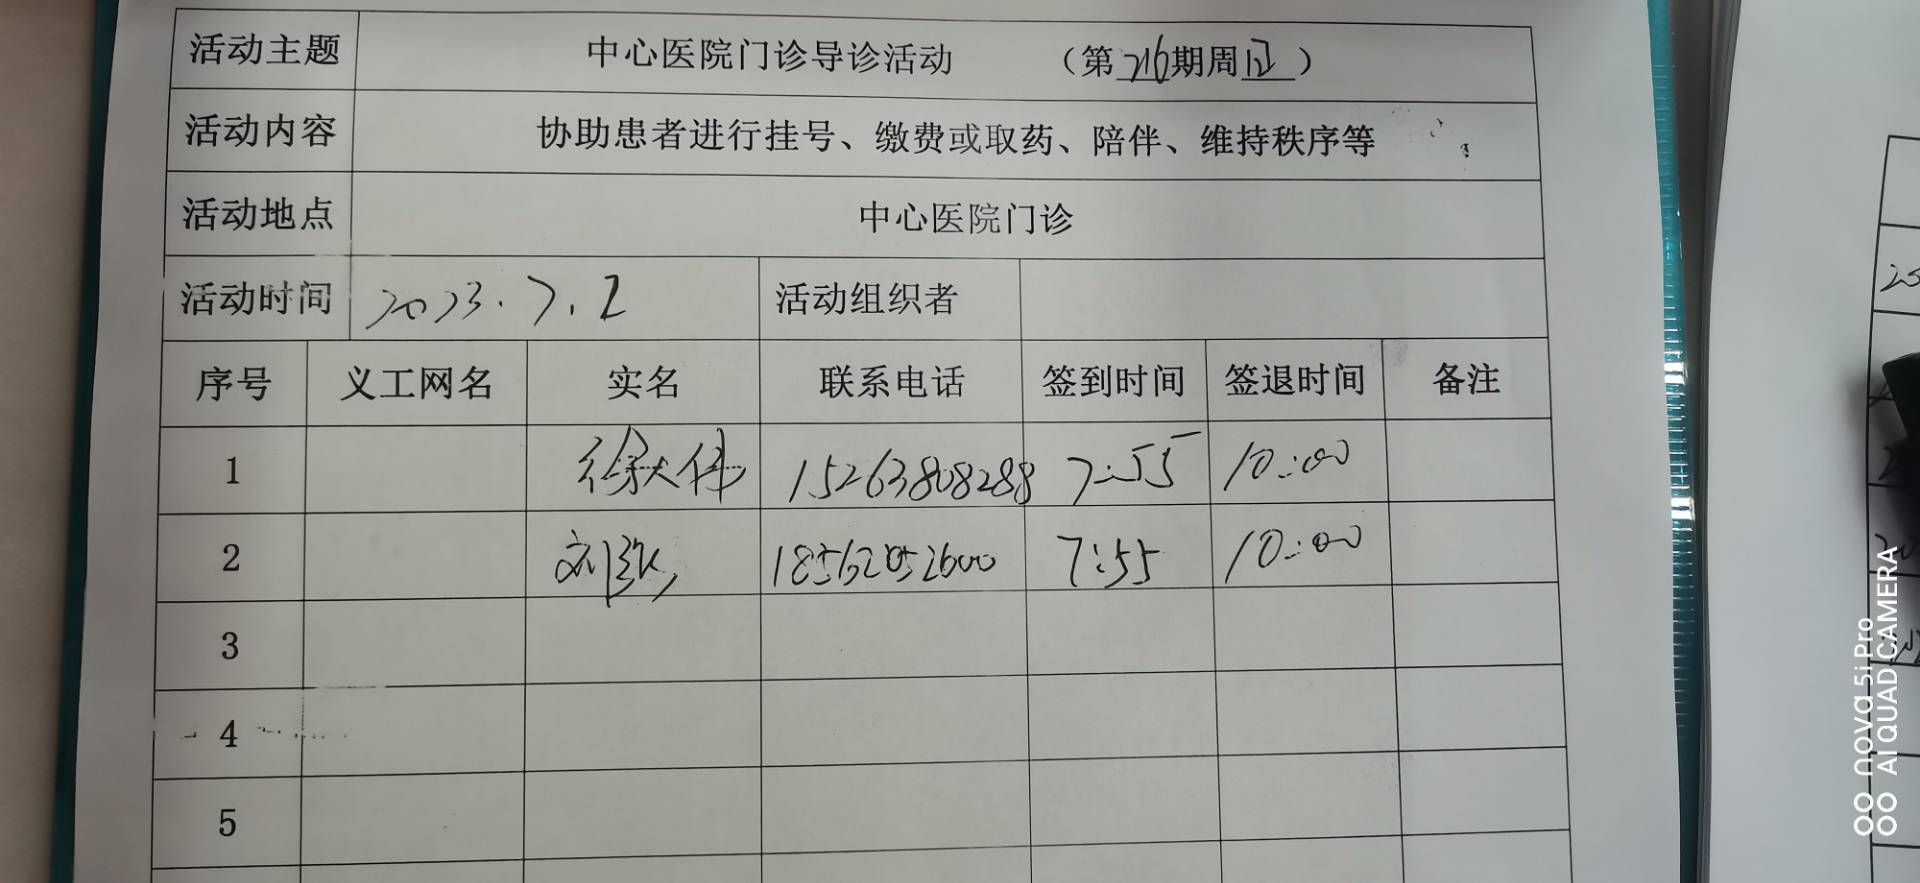 活动主题 中心医院门诊导诊活动 （第216期周日）
活动内容 协助患者进行挂号、缴费或取药、陪伴、维持秩序等
活动地点 中心医院门诊
活动时间 2023.7.2 活动组织者
序号 义工网名 实名 联系电话 签到时间 签退时间 备注
1 徐大伟 15263808288 7:55 10:00
2 刘 18562052600 7:55 10:00
3
4
5
nova 5i Pro
AI QUAD CAMERA